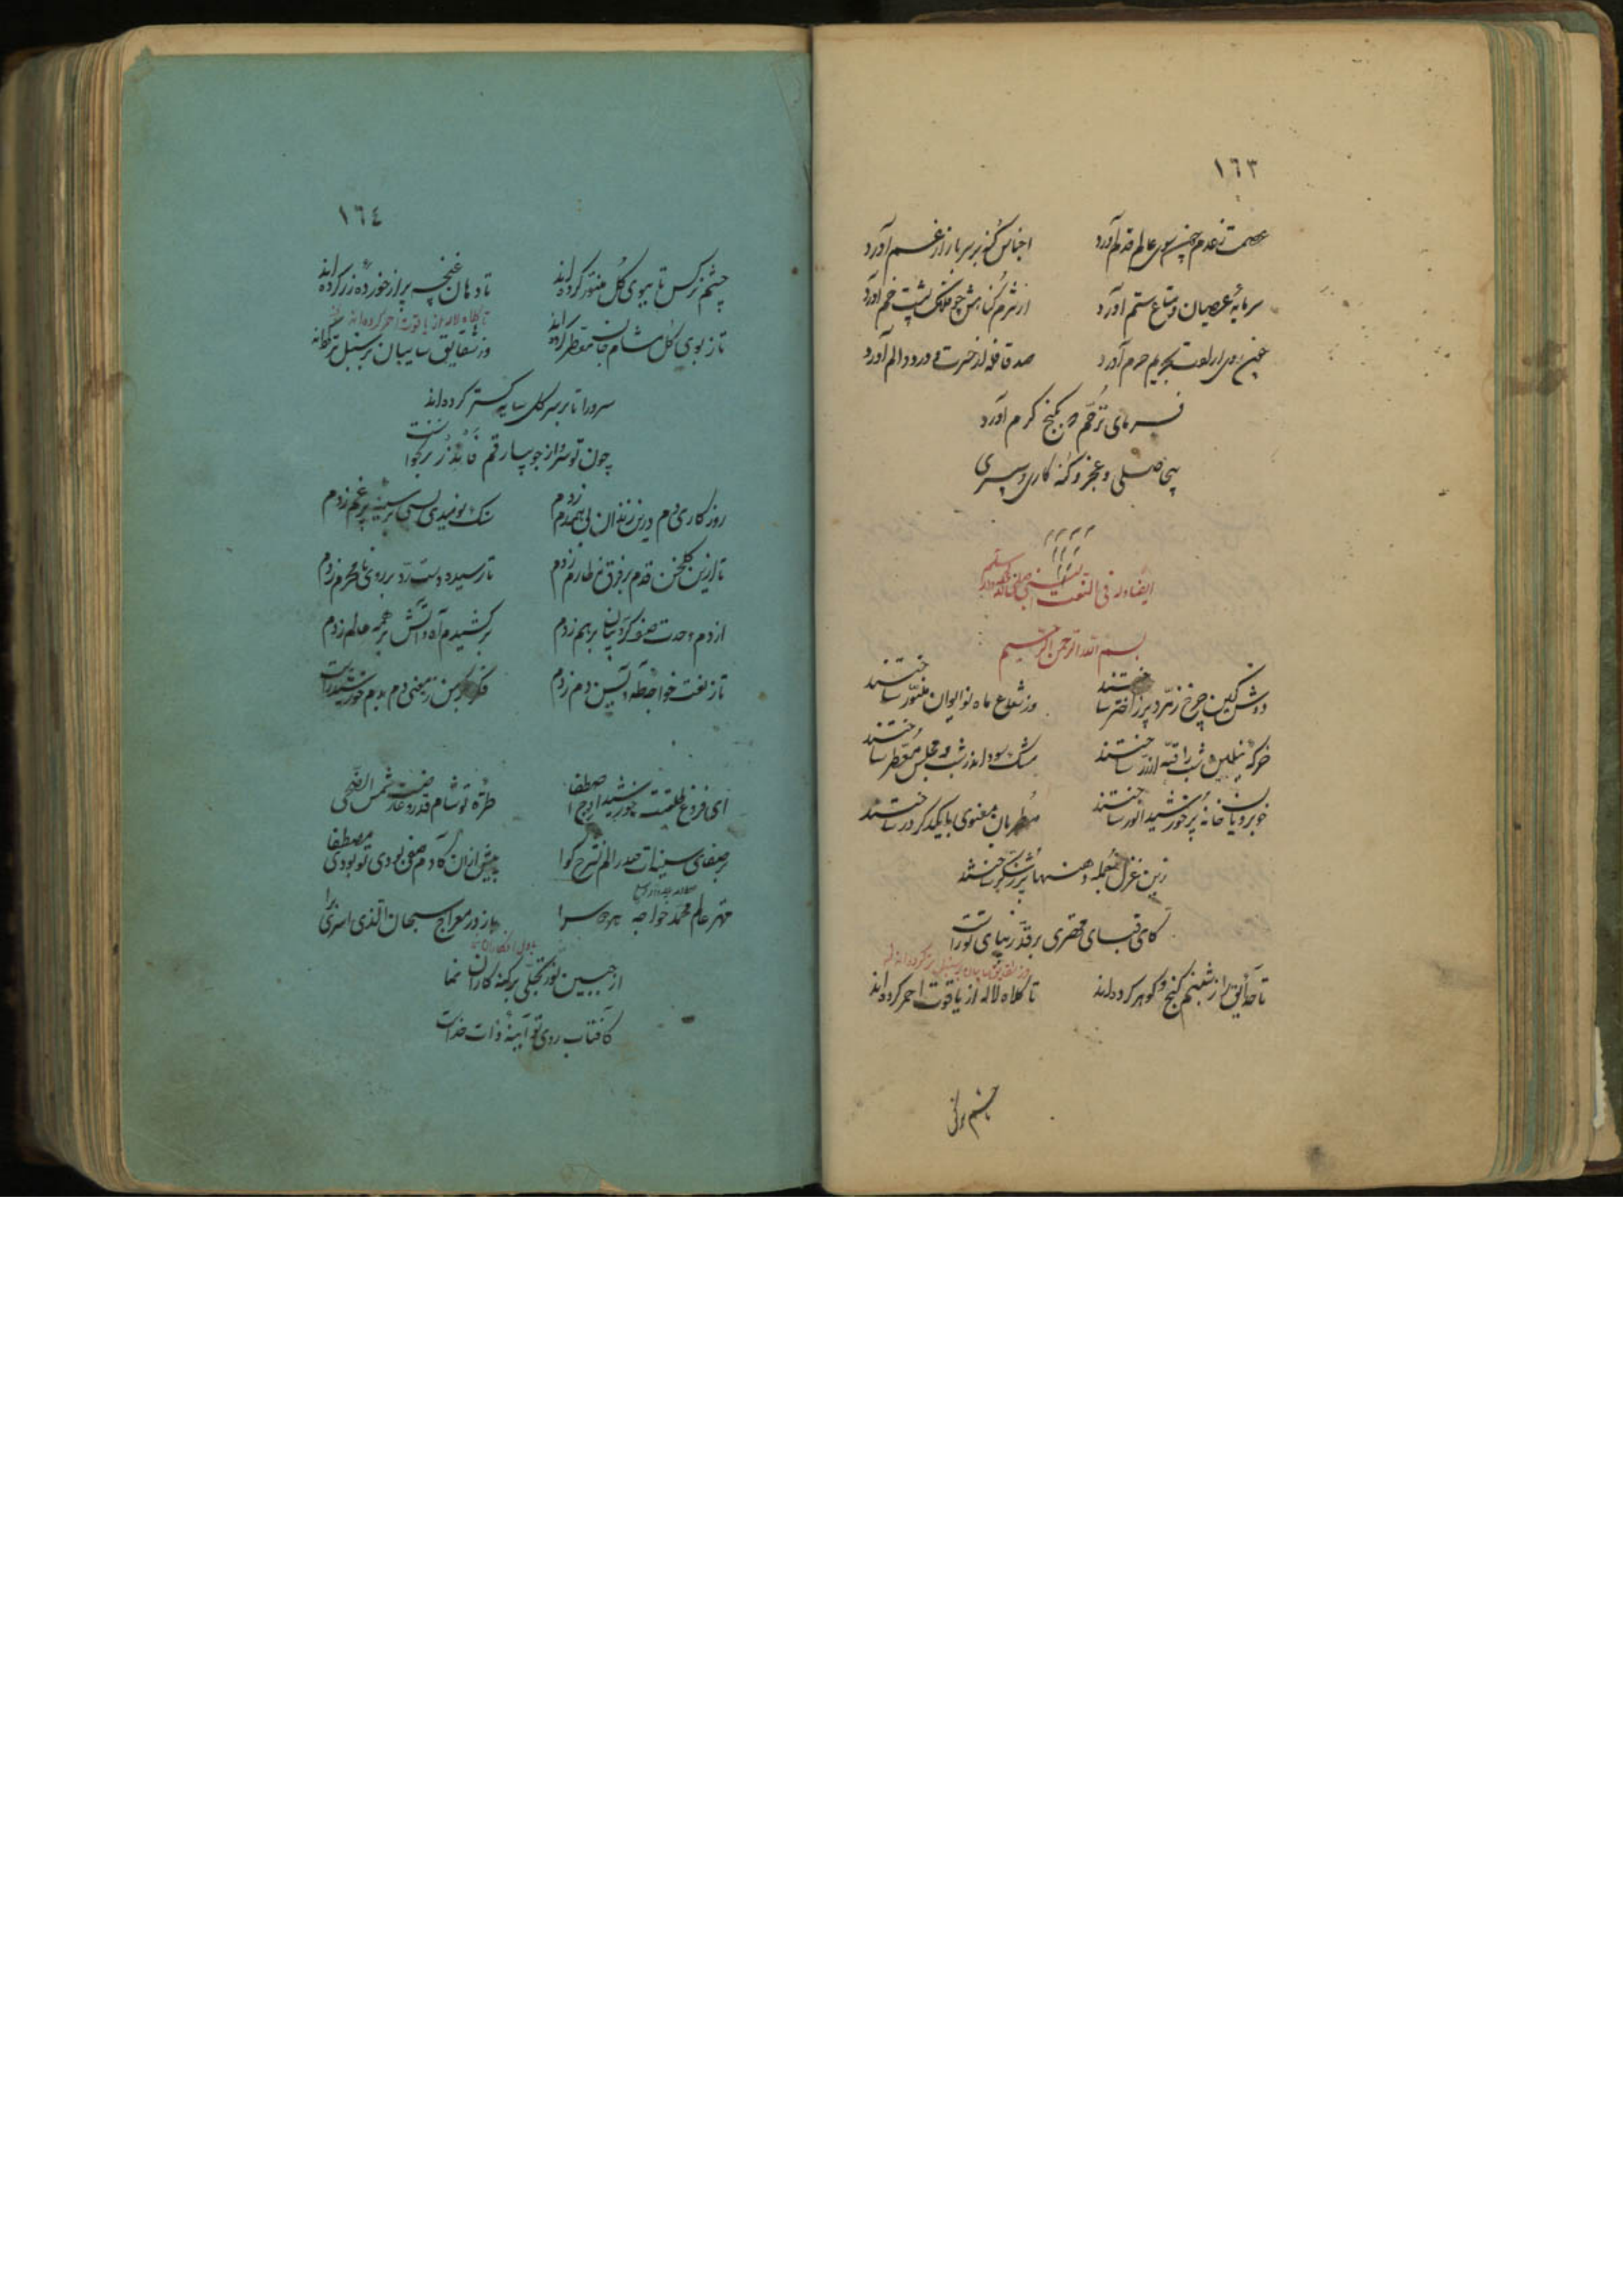 ١٦٣
عصمت ز عدم چون سوی عالم قدم آورد اجناس گنه بر سر بازار غم آورد
سرمایهٔ عصیان و متاع ستم آورد از شرم گناهش چو فلک پشت خم آورد
آورد صد قافله از حسرت و درد و الم آورد
فرمای ترحم که بگنج کرم آورد
بیحاصلی و عجز و گنه کاری و پیری
ایضاوله فی النعت النبی صلی الله علیه وسلم
بسم الله الرحمن الرحیم
دوش کین چرخ زمرد پر ز اختر ساختند وز شعاع ماه نو ایوان منور ساختند
خرگه نیلین شب را قبه از زر ساختند مشک سودند از شب و مجلس معطر ساختند
خوبرویان خانه پر خورشید انور ساختند مطربان معنوی با یکدگر در ساختند
زین غزل جمله دهنها پر ز شکر ساختند
کای قبای قیصری بر قد زیبای تو راست
تا حدایق را ز شبنم گنج و گوهر کرده اند تا کلاه لاله از یاقوت احمر کرده اند
چشم نرگس
١٦٤
چشم نرگس تا ببوی گل منور کرده اند تا دهان غنچه پر از خورده زر کرده اند
تا کلاه لاله از یاقوت احمر کرده اند
تا ز بوی گل مشام جان معطر کرده اند وز شقایق سایبان بر سنبل تر کرده اند
سرو را تا بر سر گل سایه گستر کرده اند
چون تو سرو از جویبار قم فانذر برنخاست
روزکاری دم درین زندان بی همدم زدم سنک نومیدی بسی بر سینه پر غم زدم
تا ازین گلخن قدم بر فرق نه طارم زدم تا رسیده دست رد بر روی نامحرم زدم
از دم وحدت صف کروبیان برهم زدم برکشیدم آه و آتش بر همه عالم زدم
تا ز نعت خواجه طه و یس دم زدم
ای فروغ طلعتت خورشید اوج اصطفا طرهٔ تو شام قدر و عارضت شمس الضحی
بر صفای سینه ات صدر الم نشرح گوا پیش از آن کادم صفی بودی تو بودی مصطفا
مهتر عالم محمد خواجه هر دو سرا راز در معراج سبحان الذی اسری ترا
از جبین نور تجلی بر گنه کاران نما
کافتاب روی تو آیینهٔ ذات خداست